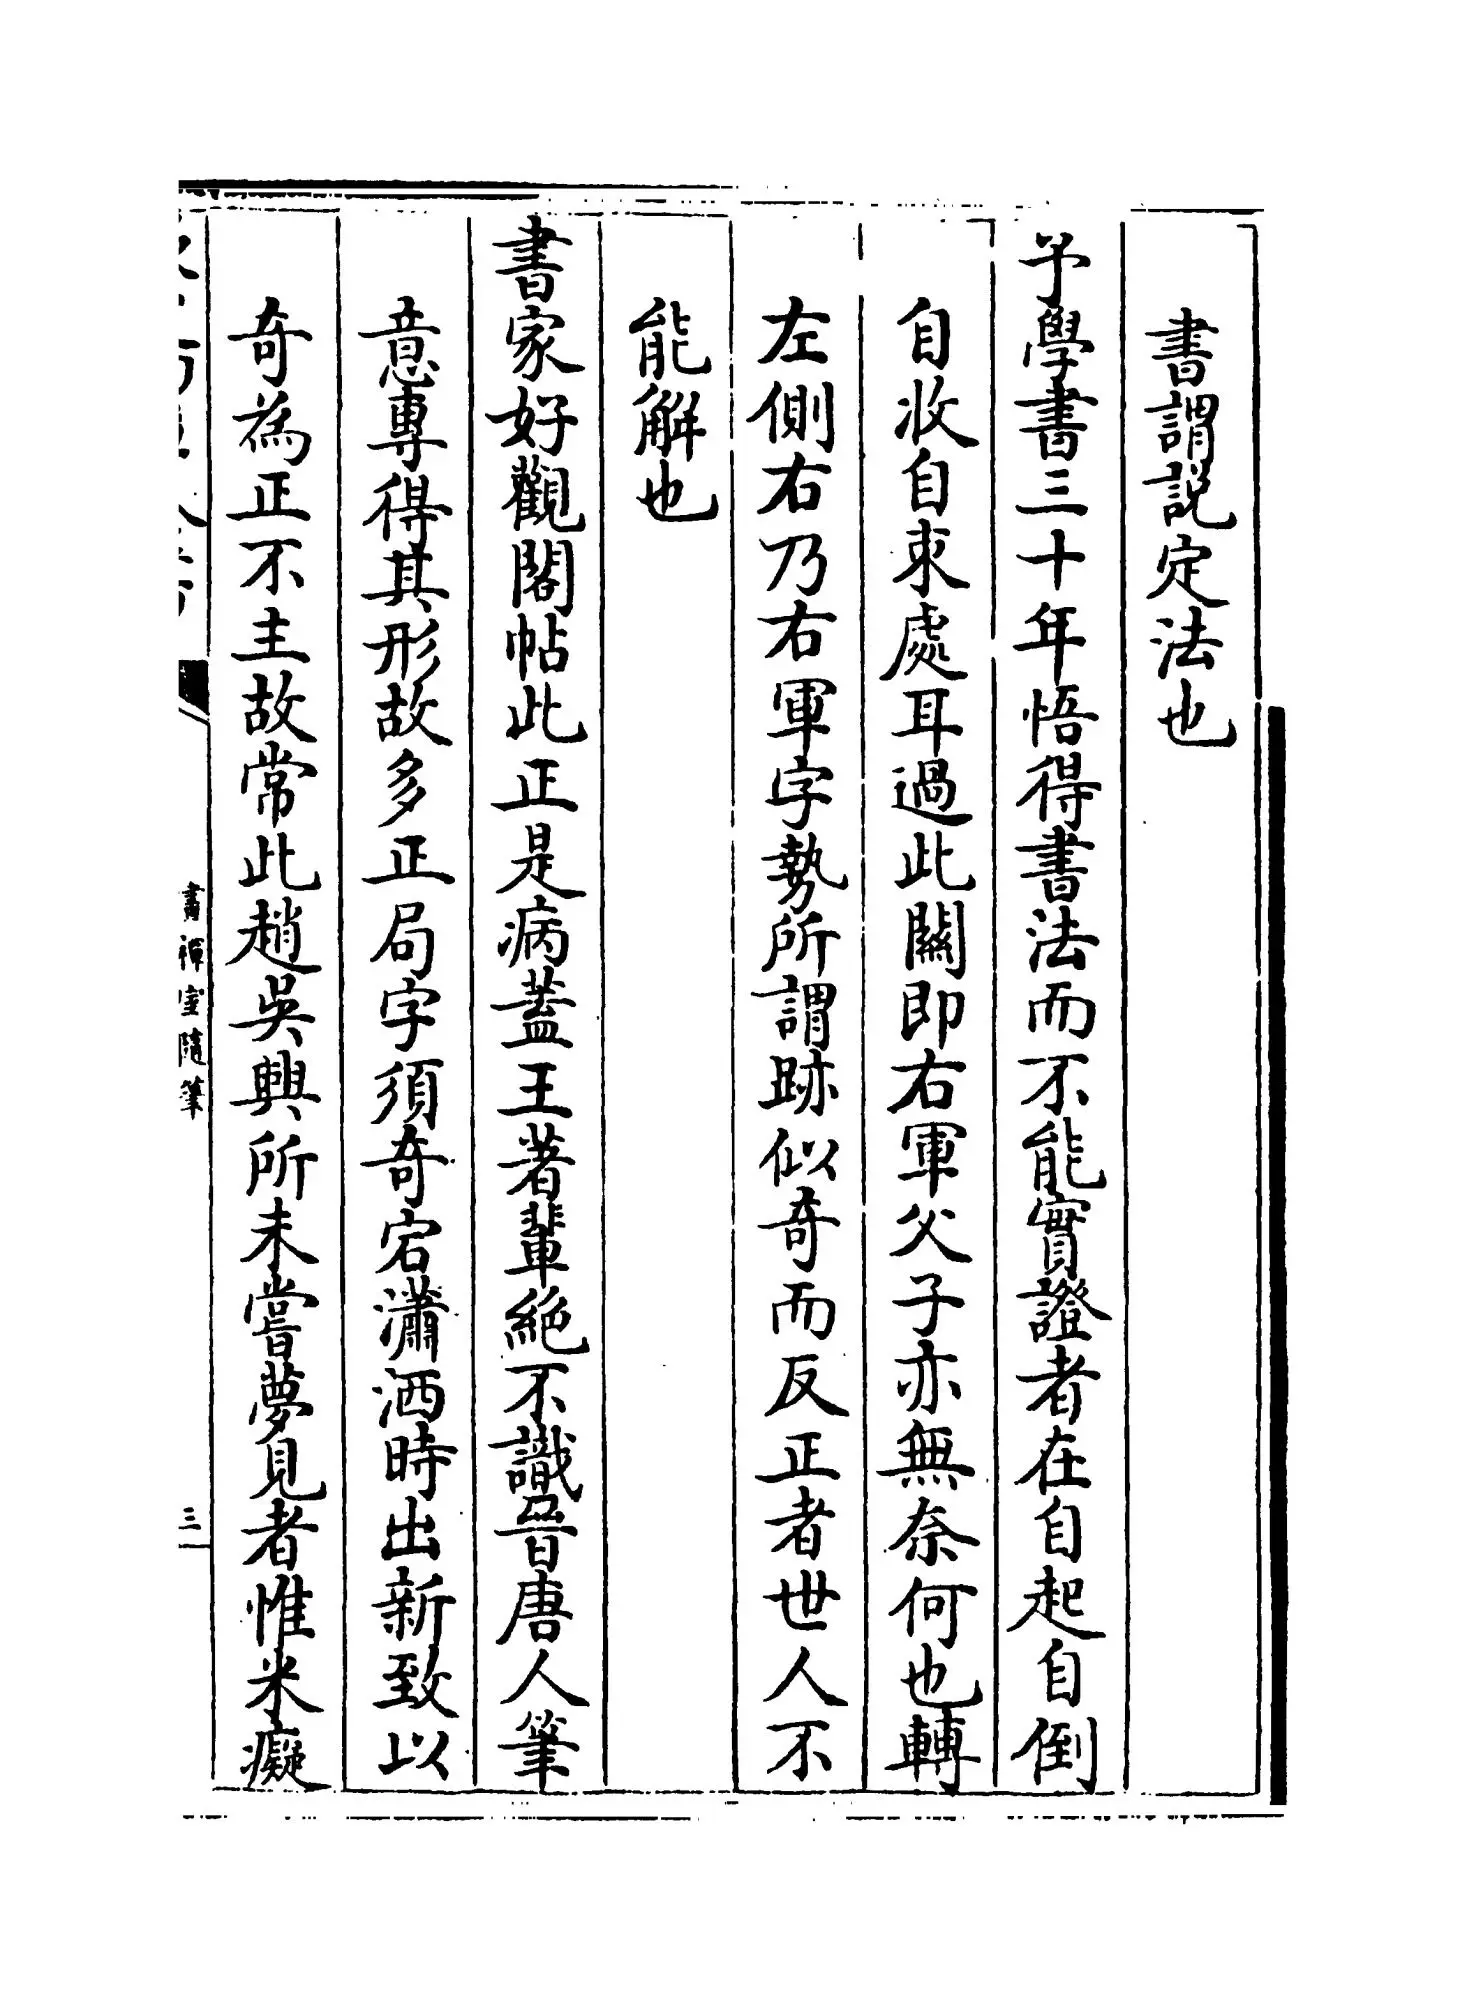 書謂説定法也
予學書三十年悟得書法而不能實證者在自起自倒
自收自束處耳過此關即右軍父子亦無奈何也轉
左側右乃右軍字勢所謂跡似奇而反正者世人不
能解也
書家好觀閣帖此正是病蓋王著輩絶不識晉唐人筆
意專得其形故多正局字須奇宕瀟洒時出新致以
奇為正不主故常此趙吳興所未嘗夢見者惟米癡
畫禪室隨筆
三